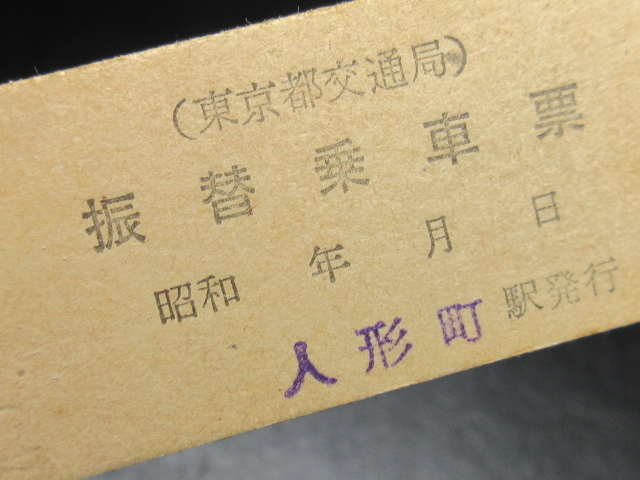 (東京都交通局)
振替乗車票
昭和 年 月 日
人形町駅発行